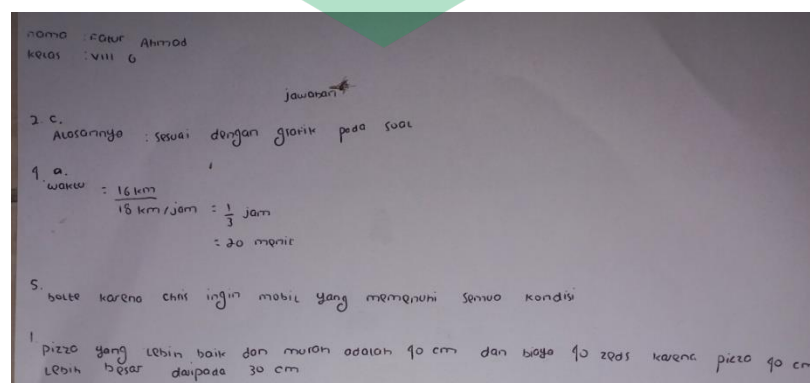 nama : Catur Ahmad
kelas : VIII G
jawaban
2 C.
Alasannya : sesuai dengan grafik pada soal
4. a.
waktu = 16 km
18 km/jam = 1/3 jam
= 20 menit
5.
bolte karena chris ingin mobil yang memenuhi semua kondisi
1
pizza yang lebih baik dan murah adalah 40 cm dan biaya 40 zeds karena pizza 40 cm
lebih besar daripada 30 cm